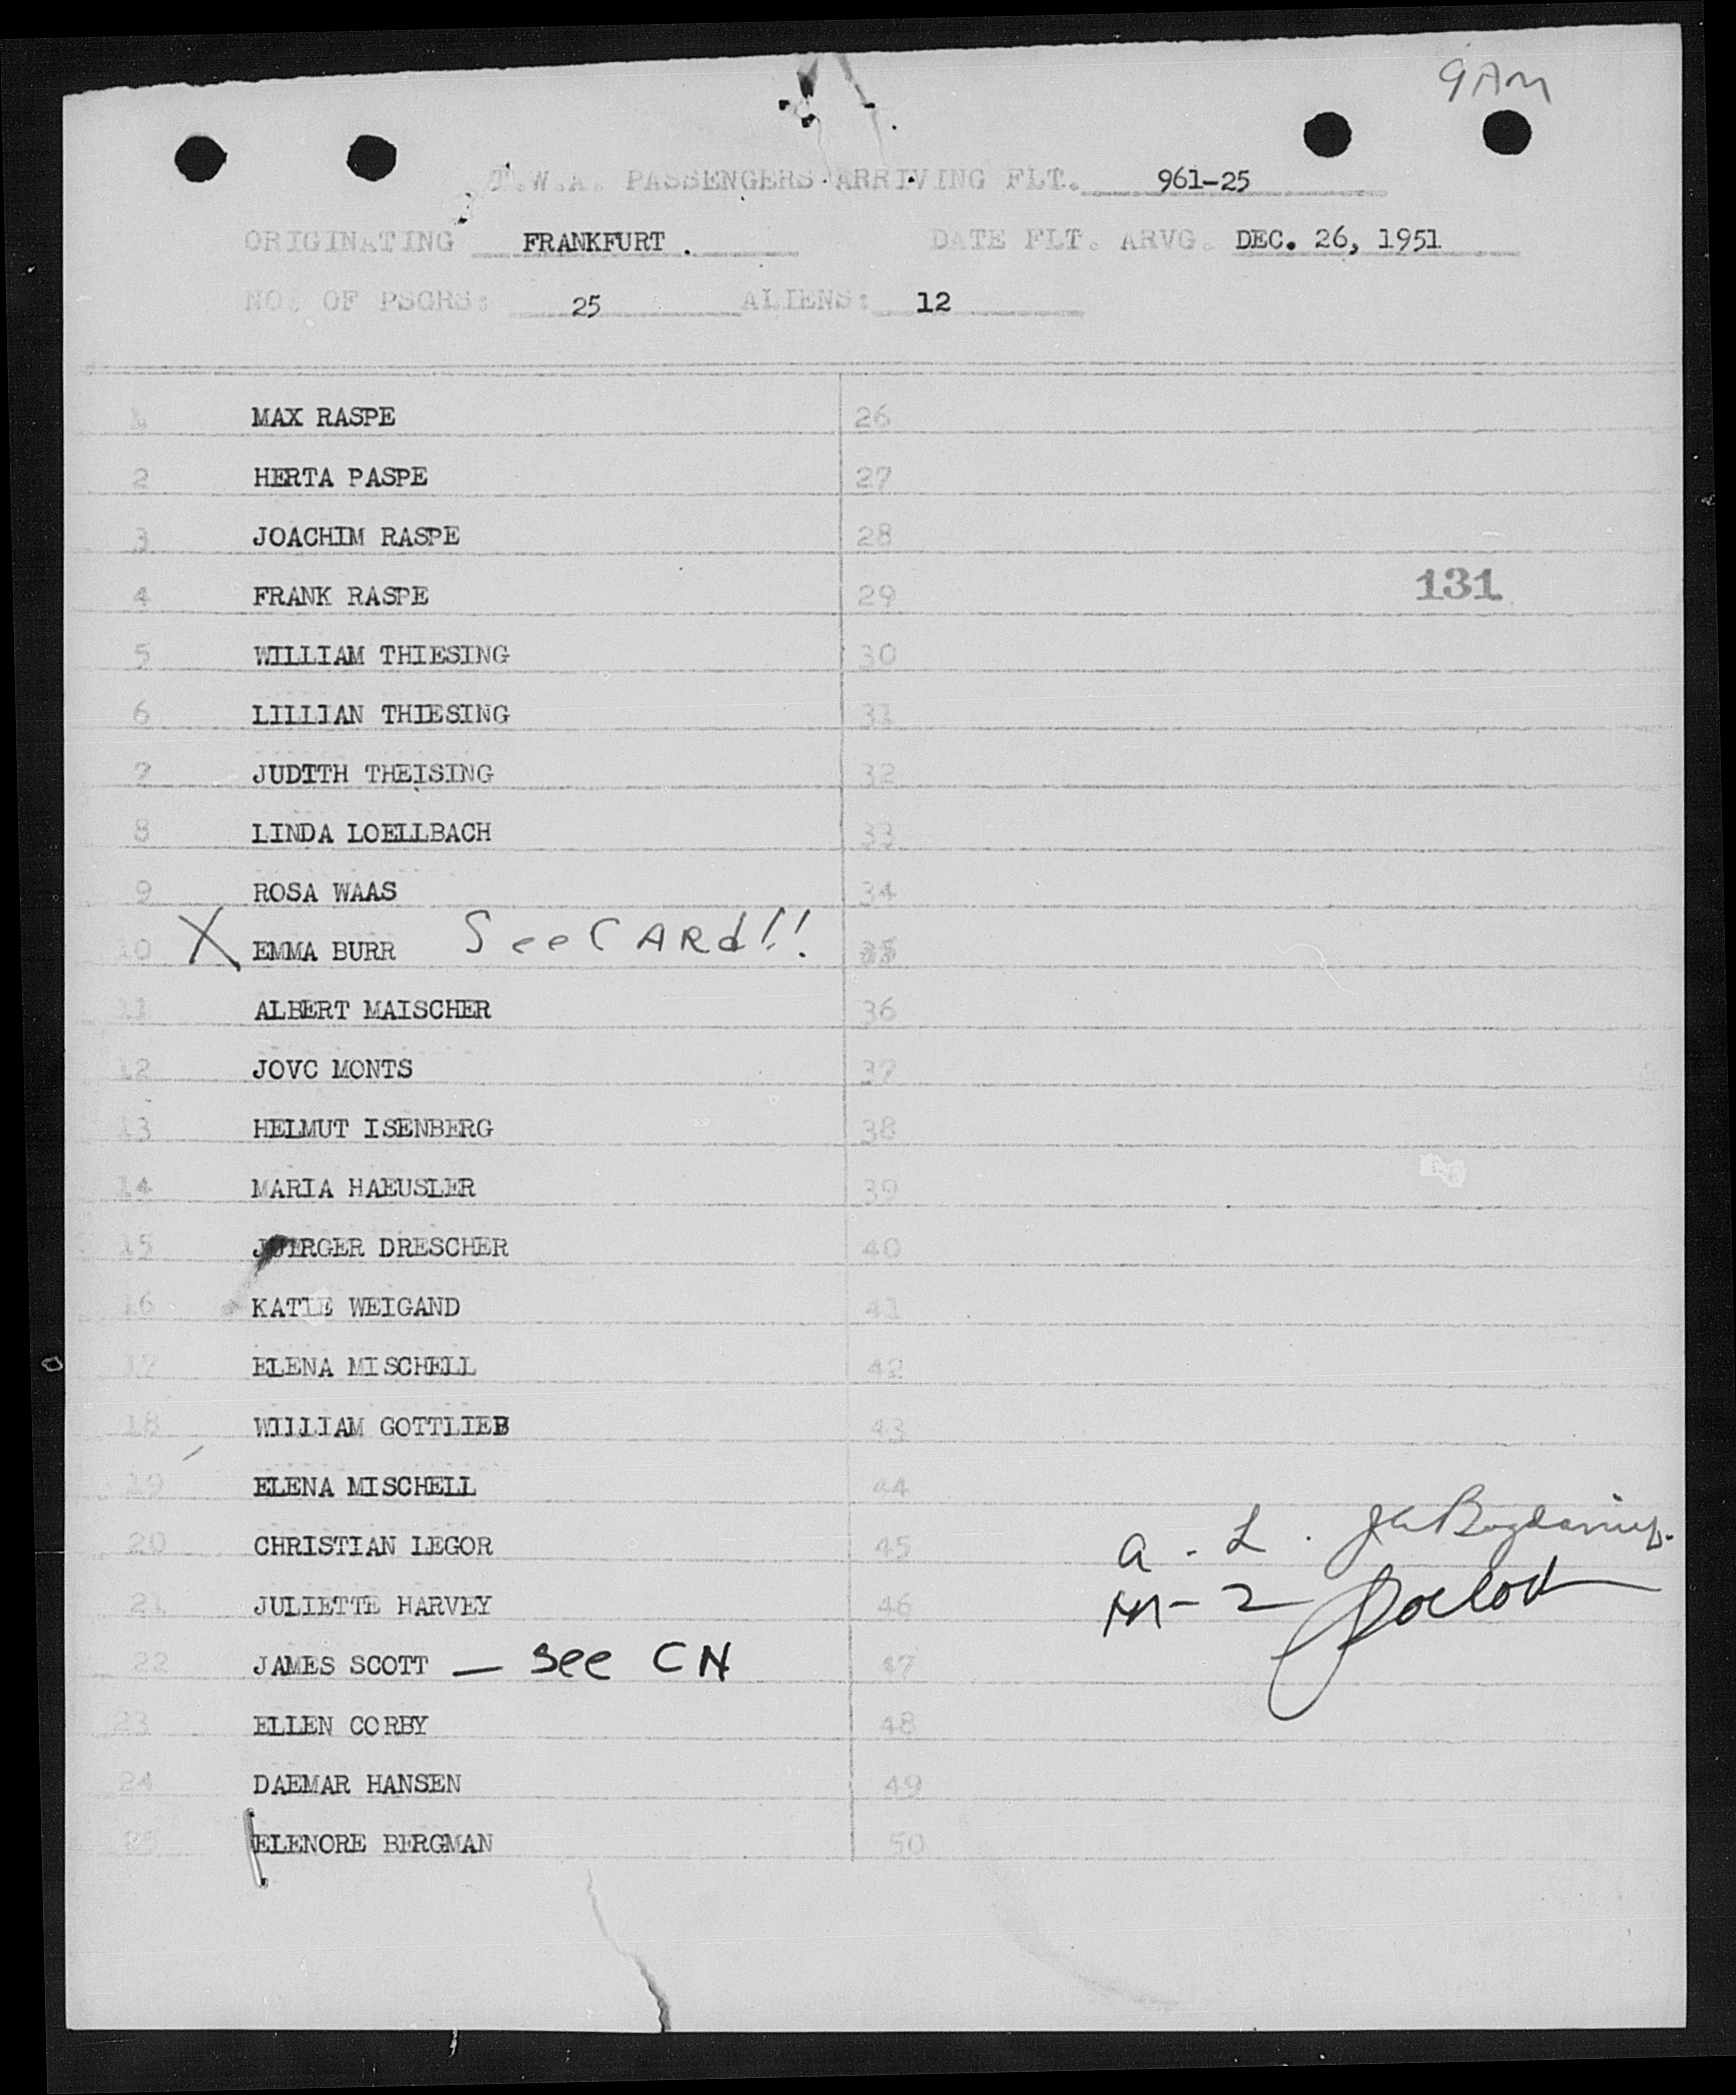 9AM
T.W.A. PASSENGERS ARRIVING FLT. 961-25
ORIGINATING FRANKFURT. DATE FLT. ARVG. DEC. 26, 1951
NO. OF PSGRS: 25 ALIENS: 12
1 MAX RASPE 26
2 HERTA PASPE 27
3 JOACHIM RASPE 28
131
4 FRANK RASPE 29
5 WILLIAM THIESING 30
6 LILLIAN THIESING 31
7 JUDITH THEISING 32
8 LINDA LOELLBACH 33
9 ROSA WAAS 34
10 X EMMA BURR See CARd!! 35
11 ALBERT MAISCHER 36
12 JOVC MONTS 37
13 HELMUT ISENBERG 38
14 MARIA HAEUSLER 39
15 JUERGER DRESCHER 40
16 KATIE WEIGAND 41
17 ELENA MISCHELL 42
18 WILLIAM GOTTLIEB 43
19 ELENA MISCHELL 44
20 CHRISTIAN LEGOR 45 a. L.
21 JULIETTE HARVEY 46 M-2
22 JAMES SCOTT — See CN 47
23 ELLEN CORBY 48
24 DAEMAR HANSEN 49
25 ELENORE BERGMAN 50